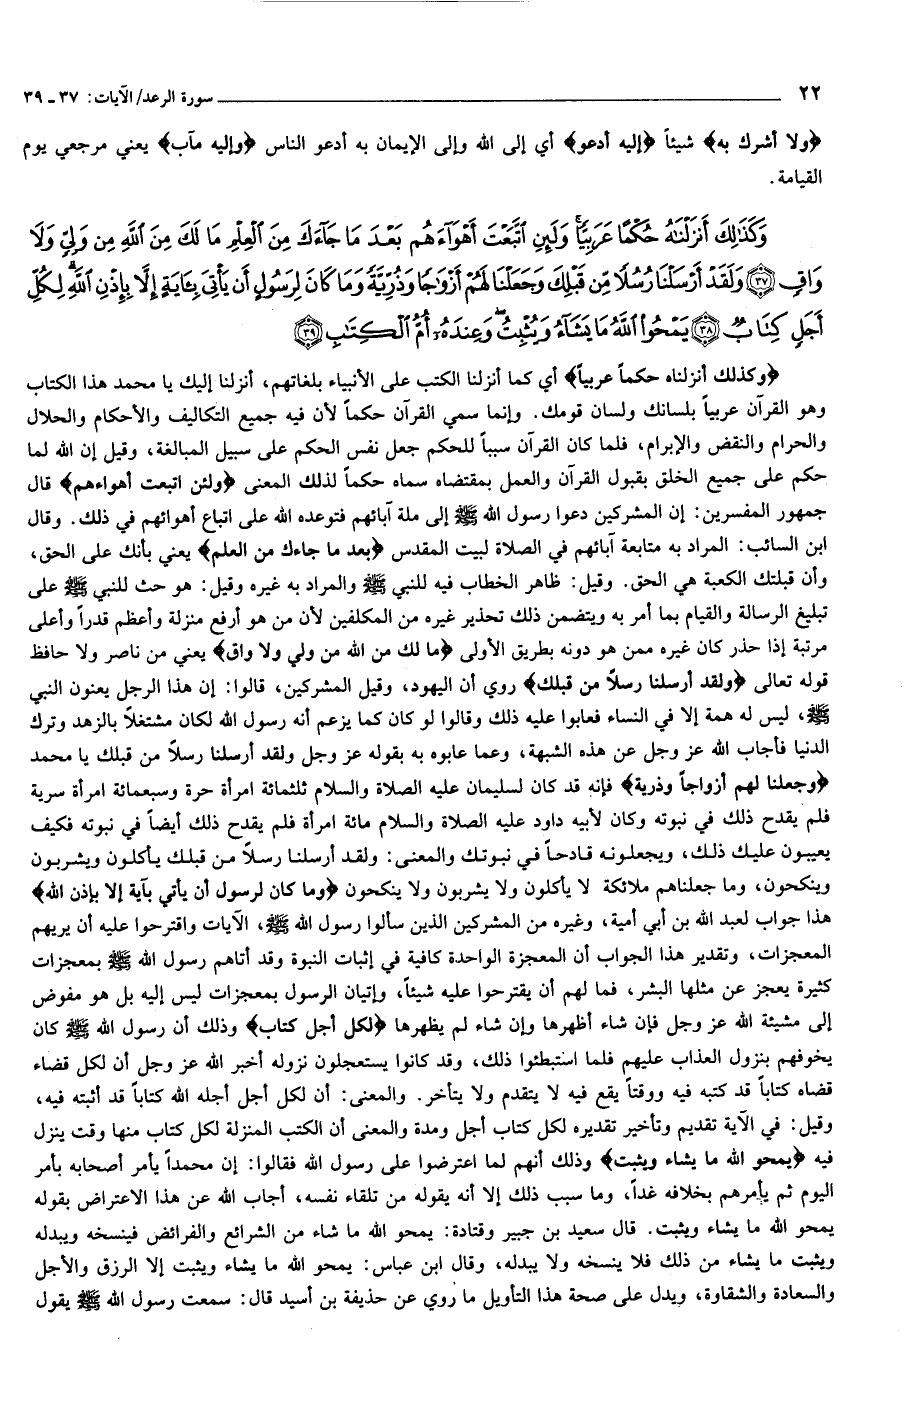 ٢٢ سورة الرعد/ الآيات: ٣٧ ـ ٣٩
﴿ولا أشرك به﴾ شيئاً ﴿إليه أدعو﴾ أي إلى الله وإلى الإيمان به أدعو الناس ﴿وإليه مآب﴾ يعني مرجعي يوم
القيامة.
وَكَذَٰلِكَ أَنزَلْنَٰهُ حُكْمًا عَرَبِيًّا ۚ وَلَئِنِ ٱتَّبَعْتَ أَهْوَآءَهُم بَعْدَ مَا جَآءَكَ مِنَ ٱلْعِلْمِ مَا لَكَ مِنَ ٱللَّهِ مِن وَلِيٍّ وَلَا
وَاقٍ ﴿٣٧﴾ وَلَقَدْ أَرْسَلْنَا رُسُلًا مِّن قَبْلِكَ وَجَعَلْنَا لَهُمْ أَزْوَٰجًا وَذُرِّيَّةً ۚ وَمَا كَانَ لِرَسُولٍ أَن يَأْتِىَ بِـَٔايَةٍ إِلَّا بِإِذْنِ ٱللَّهِ ۗ لِكُلِّ
أَجَلٍ كِتَابٌ ﴿٣٨﴾ يَمْحُوا۟ ٱللَّهُ مَا يَشَآءُ وَيُثْبِتُ ۖ وَعِندَهُۥٓ أُمُّ ٱلْكِتَٰبِ ﴿٣٩﴾
﴿وكذلك أنزلناه حكماً عربياً﴾ أي كما أنزلنا الكتب على الأنبياء بلغاتهم، أنزلنا إليك يا محمد هذا الكتاب
وهو القرآن عربياً بلسانك ولسان قومك. وإنما سمي القرآن حكماً لأن فيه جميع التكاليف والأحكام والحلال
والحرام والنقض والإبرام، فلما كان القرآن سبباً للحكم جعل نفس الحكم على سبيل المبالغة، وقيل إن الله لما
حكم على جميع الخلق بقبول القرآن والعمل بمقتضاه سماه حكماً لذلك المعنى ﴿ولئن اتبعت أهواءهم﴾ قال
جمهور المفسرين: إن المشركين دعوا رسول الله ﷺ إلى ملة آبائهم فتوعده الله على اتباع أهوائهم في ذلك. وقال
ابن السائب: المراد به متابعة آبائهم في الصلاة لبيت المقدس ﴿بعد ما جاءك من العلم﴾ يعني بأنك على الحق،
وأن قبلتك الكعبة هي الحق. وقيل: ظاهر الخطاب فيه للنبي ﷺ والمراد به غيره وقيل: هو حث للنبي ﷺ على
تبليغ الرسالة والقيام بما أمر به ويتضمن ذلك تحذير غيره من المكلفين لأن من هو أرفع منزلة وأعظم قدراً وأعلى
مرتبة إذا حذر كان غيره ممن هو دونه بطريق الأولى ﴿ما لك من الله من ولي ولا واق﴾ يعني من ناصر ولا حافظ
قوله تعالى ﴿ولقد أرسلنا رسلاً من قبلك﴾ روي أن اليهود، وقيل المشركين، قالوا: إن هذا الرجل يعنون النبي
ﷺ، ليس له همة إلا في النساء فعابوا عليه ذلك وقالوا لو كان كما يزعم أنه رسول الله لكان مشتغلاً بالزهد وترك
الدنيا فأجاب الله عز وجل عن هذه الشبهة، وعما عابوه به بقوله عز وجل ولقد أرسلنا رسلاً من قبلك يا محمد
﴿وجعلنا لهم أزواجاً وذرية﴾ فإنه قد كان لسليمان عليه الصلاة والسلام ثلثمائة امرأة حرة وسبعمائة امرأة سرية
فلم يقدح ذلك في نبوته وكان لأبيه داود عليه الصلاة والسلام مائة امرأة فلم يقدح ذلك أيضاً في نبوته فكيف
يعيبون عليك ذلك، ويجعلونه قادحاً في نبوتك والمعنى: ولقد أرسلنا رسلاً من قبلك يأكلون ويشربون
وينكحون، وما جعلناهم ملائكة لا يأكلون ولا يشربون ولا ينكحون ﴿وما كان لرسول أن يأتي بآية إلا بإذن الله﴾
هذا جواب لعبد الله بن أبي أمية، وغيره من المشركين الذين سألوا رسول الله ﷺ، الآيات واقترحوا عليه أن يريهم
المعجزات، وتقدير هذا الجواب أن المعجزة الواحدة كافية في إثبات النبوة وقد أتاهم رسول الله ﷺ بمعجزات
كثيرة يعجز عن مثلها البشر، فما لهم أن يقترحوا عليه شيئاً، وإتيان الرسول بمعجزات ليس إليه بل هو مفوض
إلى مشيئة الله عز وجل فإن شاء أظهرها وإن شاء لم يظهرها ﴿لكل أجل كتاب﴾ وذلك أن رسول الله ﷺ كان
يخوفهم بنزول العذاب عليهم فلما استبطئوا ذلك، وقد كانوا يستعجلون نزوله أخبر الله عز وجل أن لكل قضاء
قضاه كتاباً قد كتبه فيه ووقتاً يقع فيه لا يتقدم ولا يتأخر. والمعنى: أن لكل أجل أجله الله كتاباً قد أثبته فيه،
وقيل: في الآية تقديم وتأخير تقديره لكل كتاب أجل ومدة والمعنى أن الكتب المنزلة لكل كتاب منها وقت ينزل
فيه ﴿يمحو الله ما يشاء ويثبت﴾ وذلك أنهم لما اعترضوا على رسول الله فقالوا: إن محمداً يأمر أصحابه بأمر
اليوم ثم يأمرهم بخلافه غداً، وما سبب ذلك إلا أنه يقوله من تلقاء نفسه، أجاب الله عن هذا الاعتراض بقوله
يمحو الله ما يشاء ويثبت. قال سعيد بن جبير وقتادة: يمحو الله ما شاء من الشرائع والفرائض فينسخه ويبدله
ويثبت ما يشاء من ذلك فلا ينسخه ولا يبدله، وقال ابن عباس: يمحو الله ما يشاء ويثبت إلا الرزق والأجل
والسعادة والشقاوة، ويدل على صحة هذا التأويل ما روي عن حذيفة بن أسيد قال: سمعت رسول الله ﷺ يقول